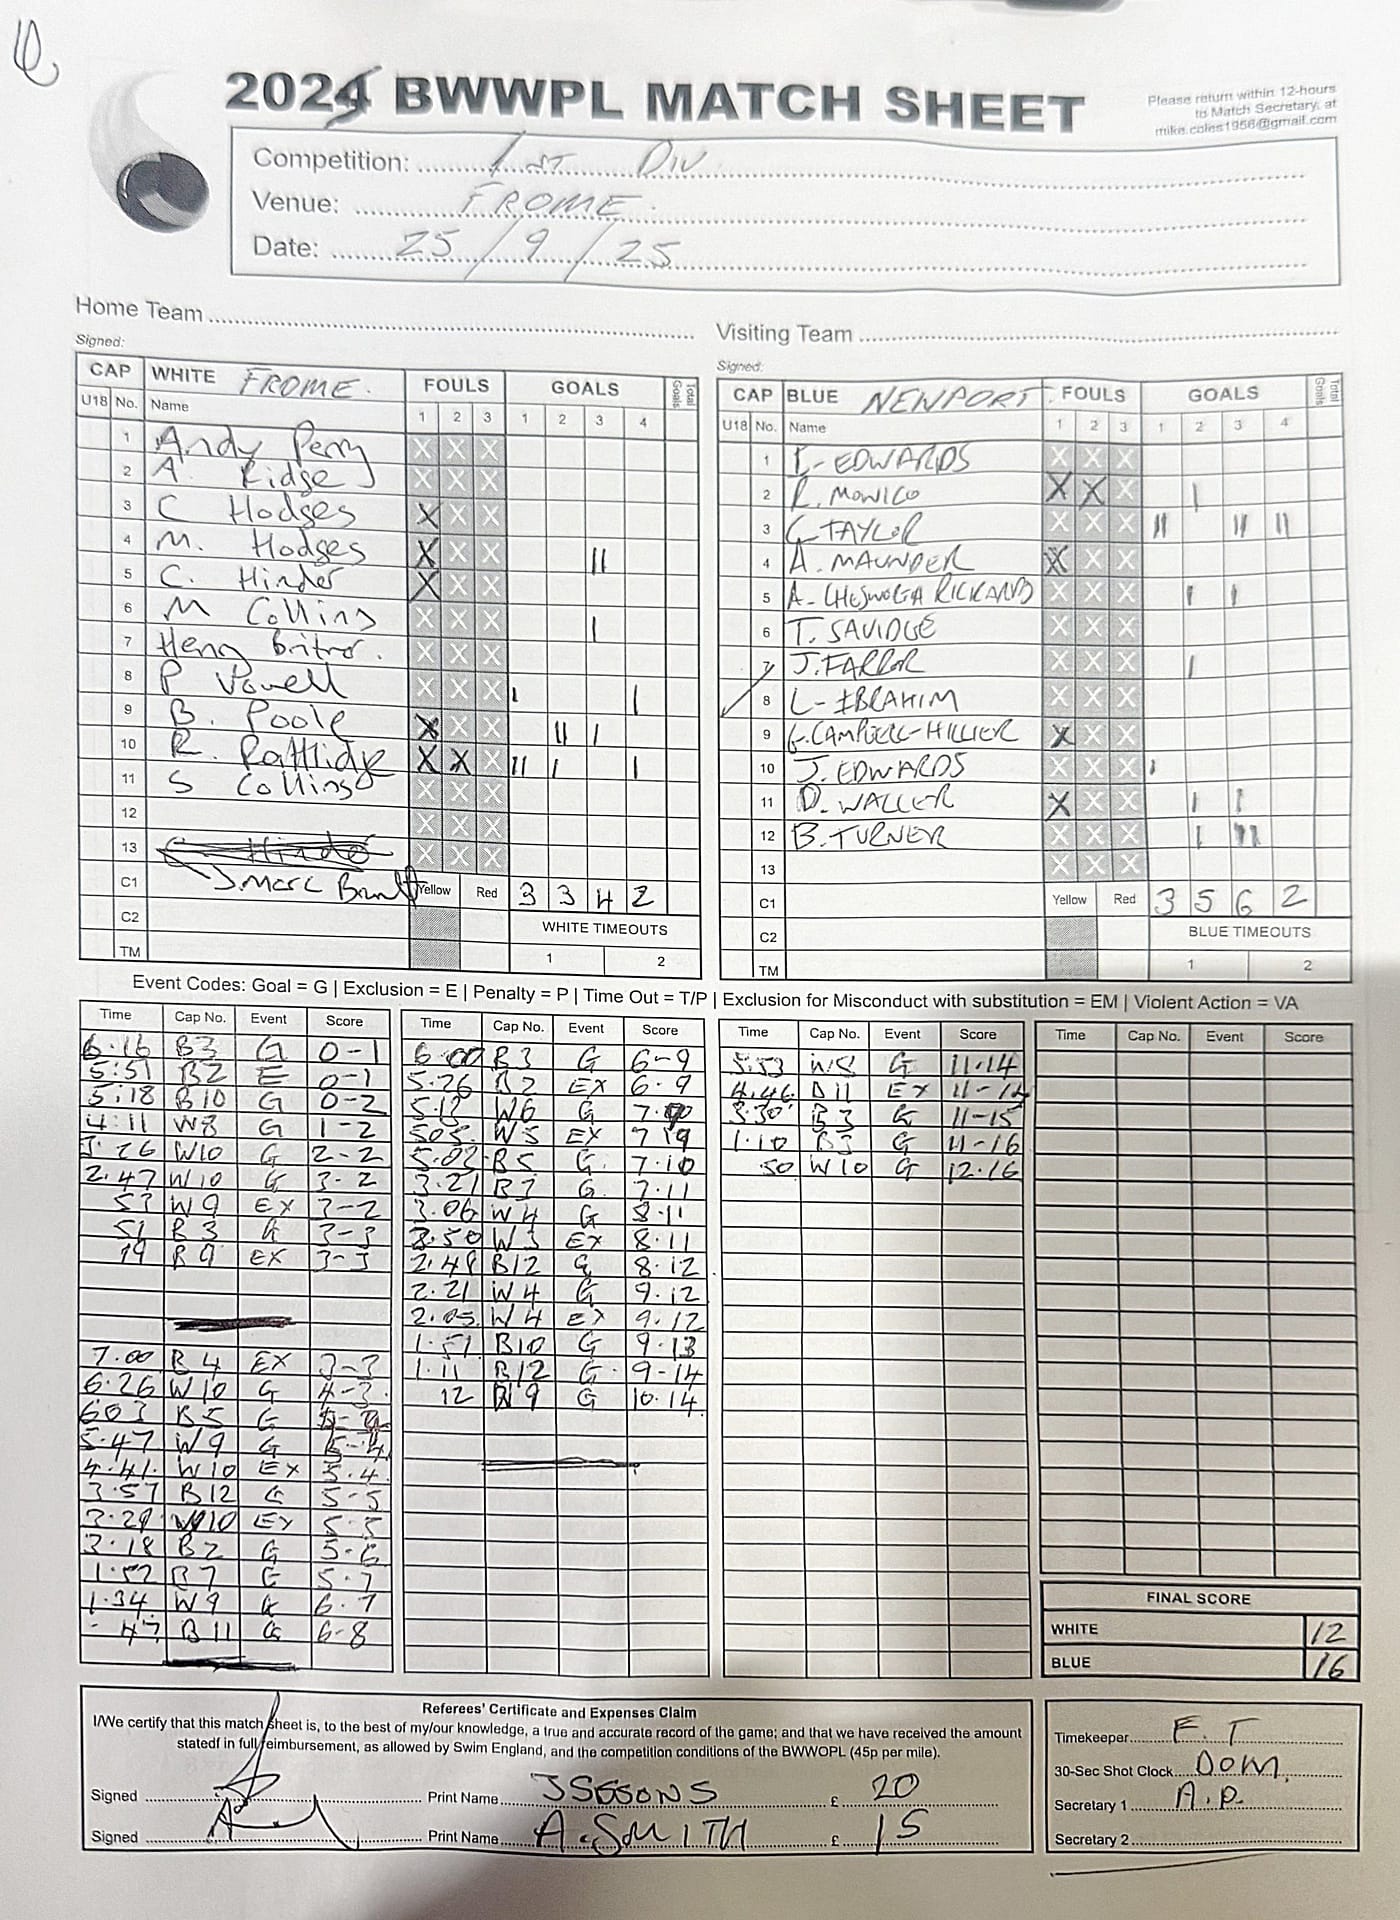 2025 BWWPL MATCH SHEET
Please return within 12-hours
to Match Secretary, at
mike.coles1956@gmail.com
Competition: 1st Div
Venue: FROME
Date: 25/9/25
Home Team
Visiting Team
Signed:
Signed:
CAP WHITE FROME. FOULS GOALS Total Goals
U18 No. Name 1 2 3 1 2 3 4
1 Andy Perry X X X
2 A. Ridge X X X
3 C Hodges X X X
4 M. Hodges X X X ||
5 C. Hinder X X X
6 M Collins X X X |
7 Henry X X X
8 P Vowell X X X | |
9 B. Poole X X X || |
10 R. X X X || | |
11 S Collings X X X
12 X X X
13 X X X
C1 J. Marc Yellow Red 3 3 4 2
C2 WHITE TIMEOUTS
TM 1 2
CAP BLUE NEWPORT. FOULS GOALS Total Goals
U18 No. Name 1 2 3 1 2 3 4
1 EDWARDS X X X
2 R. MONICO X X X |
3 G TAYLOR X X X || || ||
4 A. MAUNDER X X X
5 A. RICKARDS X X X | |
6 T. SAVIDGE X X X
7 J. FARROR X X X |
8 L- IBRAHIM X X X
9 G. CAMPBELL-HILLIER X X X
10 J. EDWARDS X X X |
11 D. WALLER X X X | |
12 B. TURNER X X X | |||
13 X X X
C1 Yellow Red 3 5 6 2
C2 BLUE TIMEOUTS
TM 1 2
Event Codes: Goal = G | Exclusion = E | Penalty = P | Time Out = T/P | Exclusion for Misconduct with substitution = EM | Violent Action = VA
Time Cap No. Event Score
6.16 B3 G 0-1
5:51 B2 E 0-1
5:18 B10 G 0-2
4:11 W8 G 1-2
3.26 W10 G 2-2
2.47 W10 G 3-2
53 W9 EX 3-2
51 B3 G 3-3
19 B9 EX 3-3
7.00 B4 EX 3-3
6.26 W10 G 4-3
603 B5 G
5.47 W9 G 5-4
4.41. W10 EX 5.4
3.57 B12 G 5-5
3.29 W10 EX 5.5
3.18 B2 G 5-6
1.52 B7 G 5.7
1.34 W9 G 6.7
47 B11 G 6-8
Time Cap No. Event Score
6.00 B3 G 6-9
5.26 B2 EX 6.9
5.12 W6 G 7.9
505. W5 EX 7 9
5.02 B5 G 7.10
3.21 B3 G 7.11
3.06 W4 G 8.11
2.50 W3 EX 8.11
2.48 B12 G 8.12
2.21 W4 G 9.12
2.05. W4 EX 9.12
1.51 B10 G 9.13
1.11 B12 G 9-14
12 W9 G 10.14
Time Cap No. Event Score
5.53 W8 G 11.14
4.46 B11 EX 11-14
3.30 B3 G 11-15
1.10 B3 G 11-16
.50 W10 G 12.16
Time Cap No. Event Score
FINAL SCORE
WHITE 12
BLUE 16
Referees' Certificate and Expenses Claim
I/We certify that this match sheet is, to the best of my/our knowledge, a true and accurate record of the game; and that we have received the amount
statedf in full reimbursement, as allowed by Swim England, and the competition conditions of the BWWOPL (45p per mile).
Signed Print Name £ 20
Signed Print Name A. SMITH £ 15
Timekeeper E. T
30-Sec Shot Clock DOM.
Secretary 1 A.P.
Secretary 2